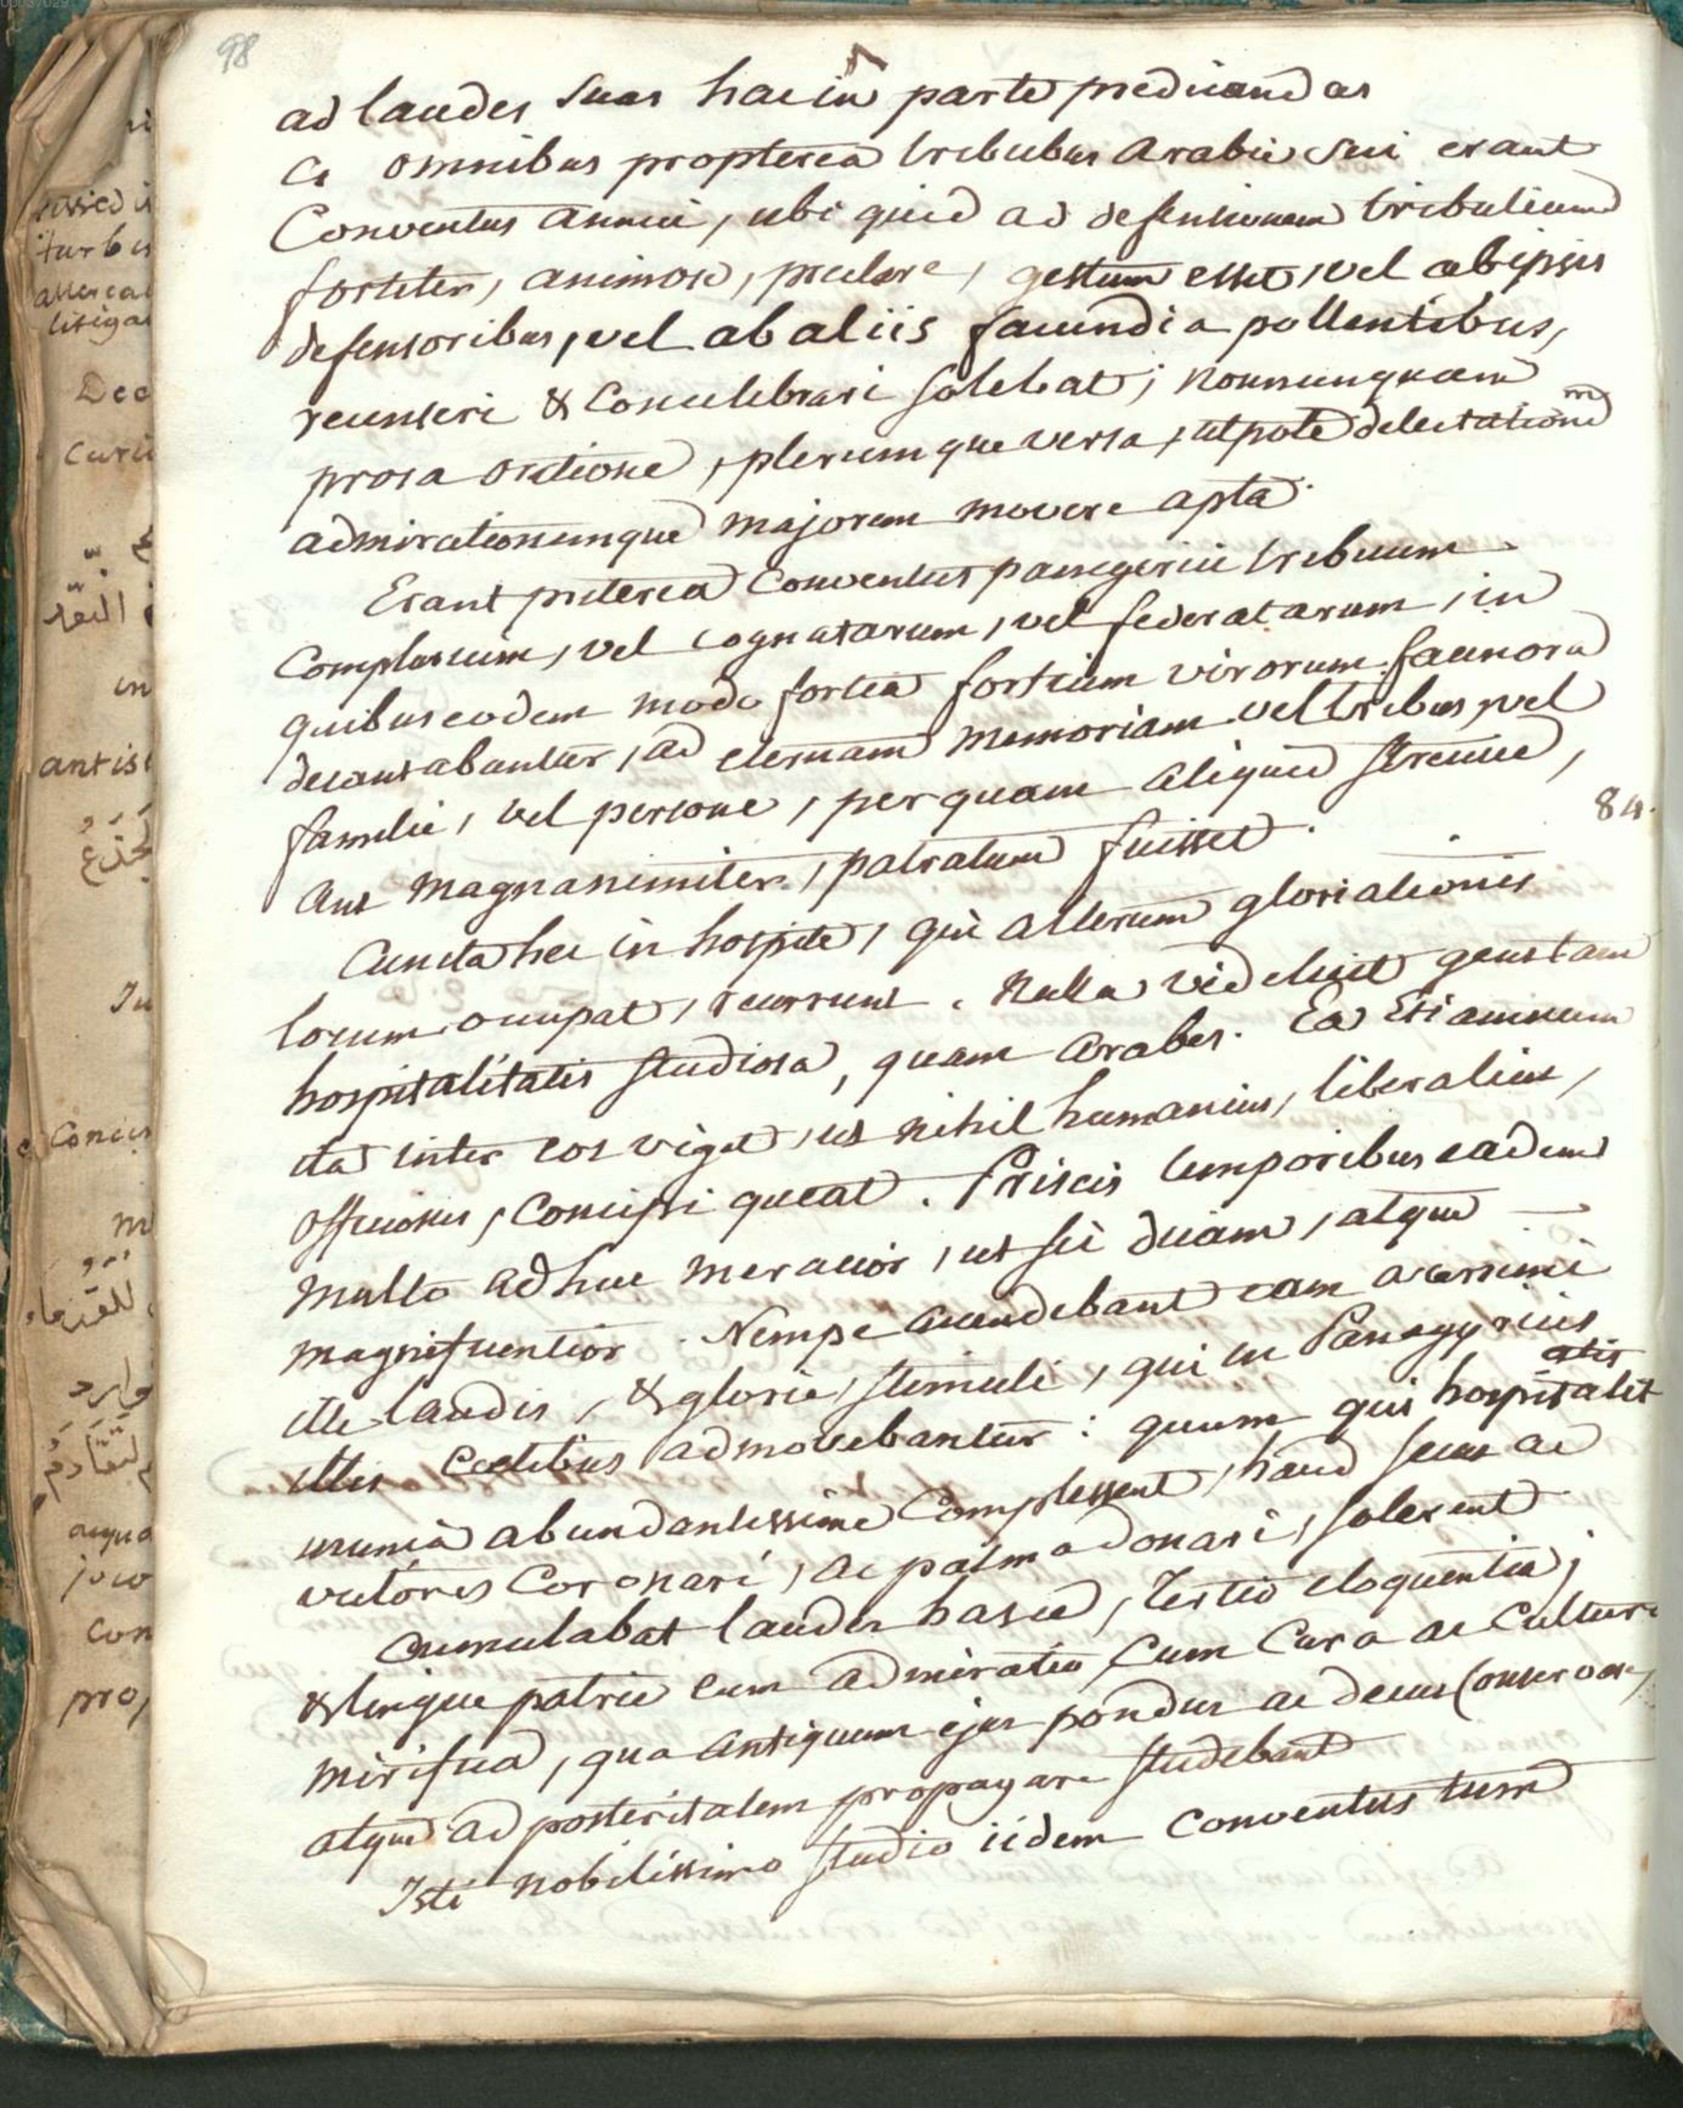 98
ad laudes suas hac in parte predicandas
Ce omnibus propterea tribubus Arabie sui erant
Conventus annui, ubi quid ad defensionem tribulium
fortiter, animose, preclare, gestum esset, vel ab ipsis
defensoribus, vel ab aliis facundia pollentibus,
recenseri & Concelebrari solebat; nonnunquam
prosa oratione, plerumque versa, utpote delectationem
admirationemque majorem movere apta.
Erant preterea Conventus panegirici tribuum
Complurium, vel cognatarum, vel federatarum, in
quibus eodem modo fortia fortium virorum facinora
decantabantur, ad eternam memoriam vel tribus, vel
familie, vel persone, per quam aliquid strenue,
84.
aut magnanimiter, patratum fuisset.
Cuncta hec in hospite, qui alterum gloriationis
locum occupat, recurrunt. Nulla videlicet gens tam
hospitalitatis studiosa, quam Arabes. Ea Etiamnum
ita inter eos viget, ut nihil humanius, liberalius,
officiosius, Concipi queat. Priscis temporibus eadem
multo adhuc meracior, ut sic dicam, atque
magnificentior. Nempe accendebant eam acerrimi
ille laudis, & glorie, stimuli, qui in Panegyricis
illis Cetibus admovebantur: quum qui hospitalit
atis
munia abundantissime Complessent, haud secus ac
victores Coronari, ac palma donari, solerent.
Cumulabat laudes hasce, Tertio eloquentia;
& lingue patrie cum admiratio, Cum Cura ac Cultura
mirifica, qua antiquum ejus pondus ac decus Conservare,
atque ad posteritatem propagare studebant
Isti nobilissimo studio iidem Conventus tum